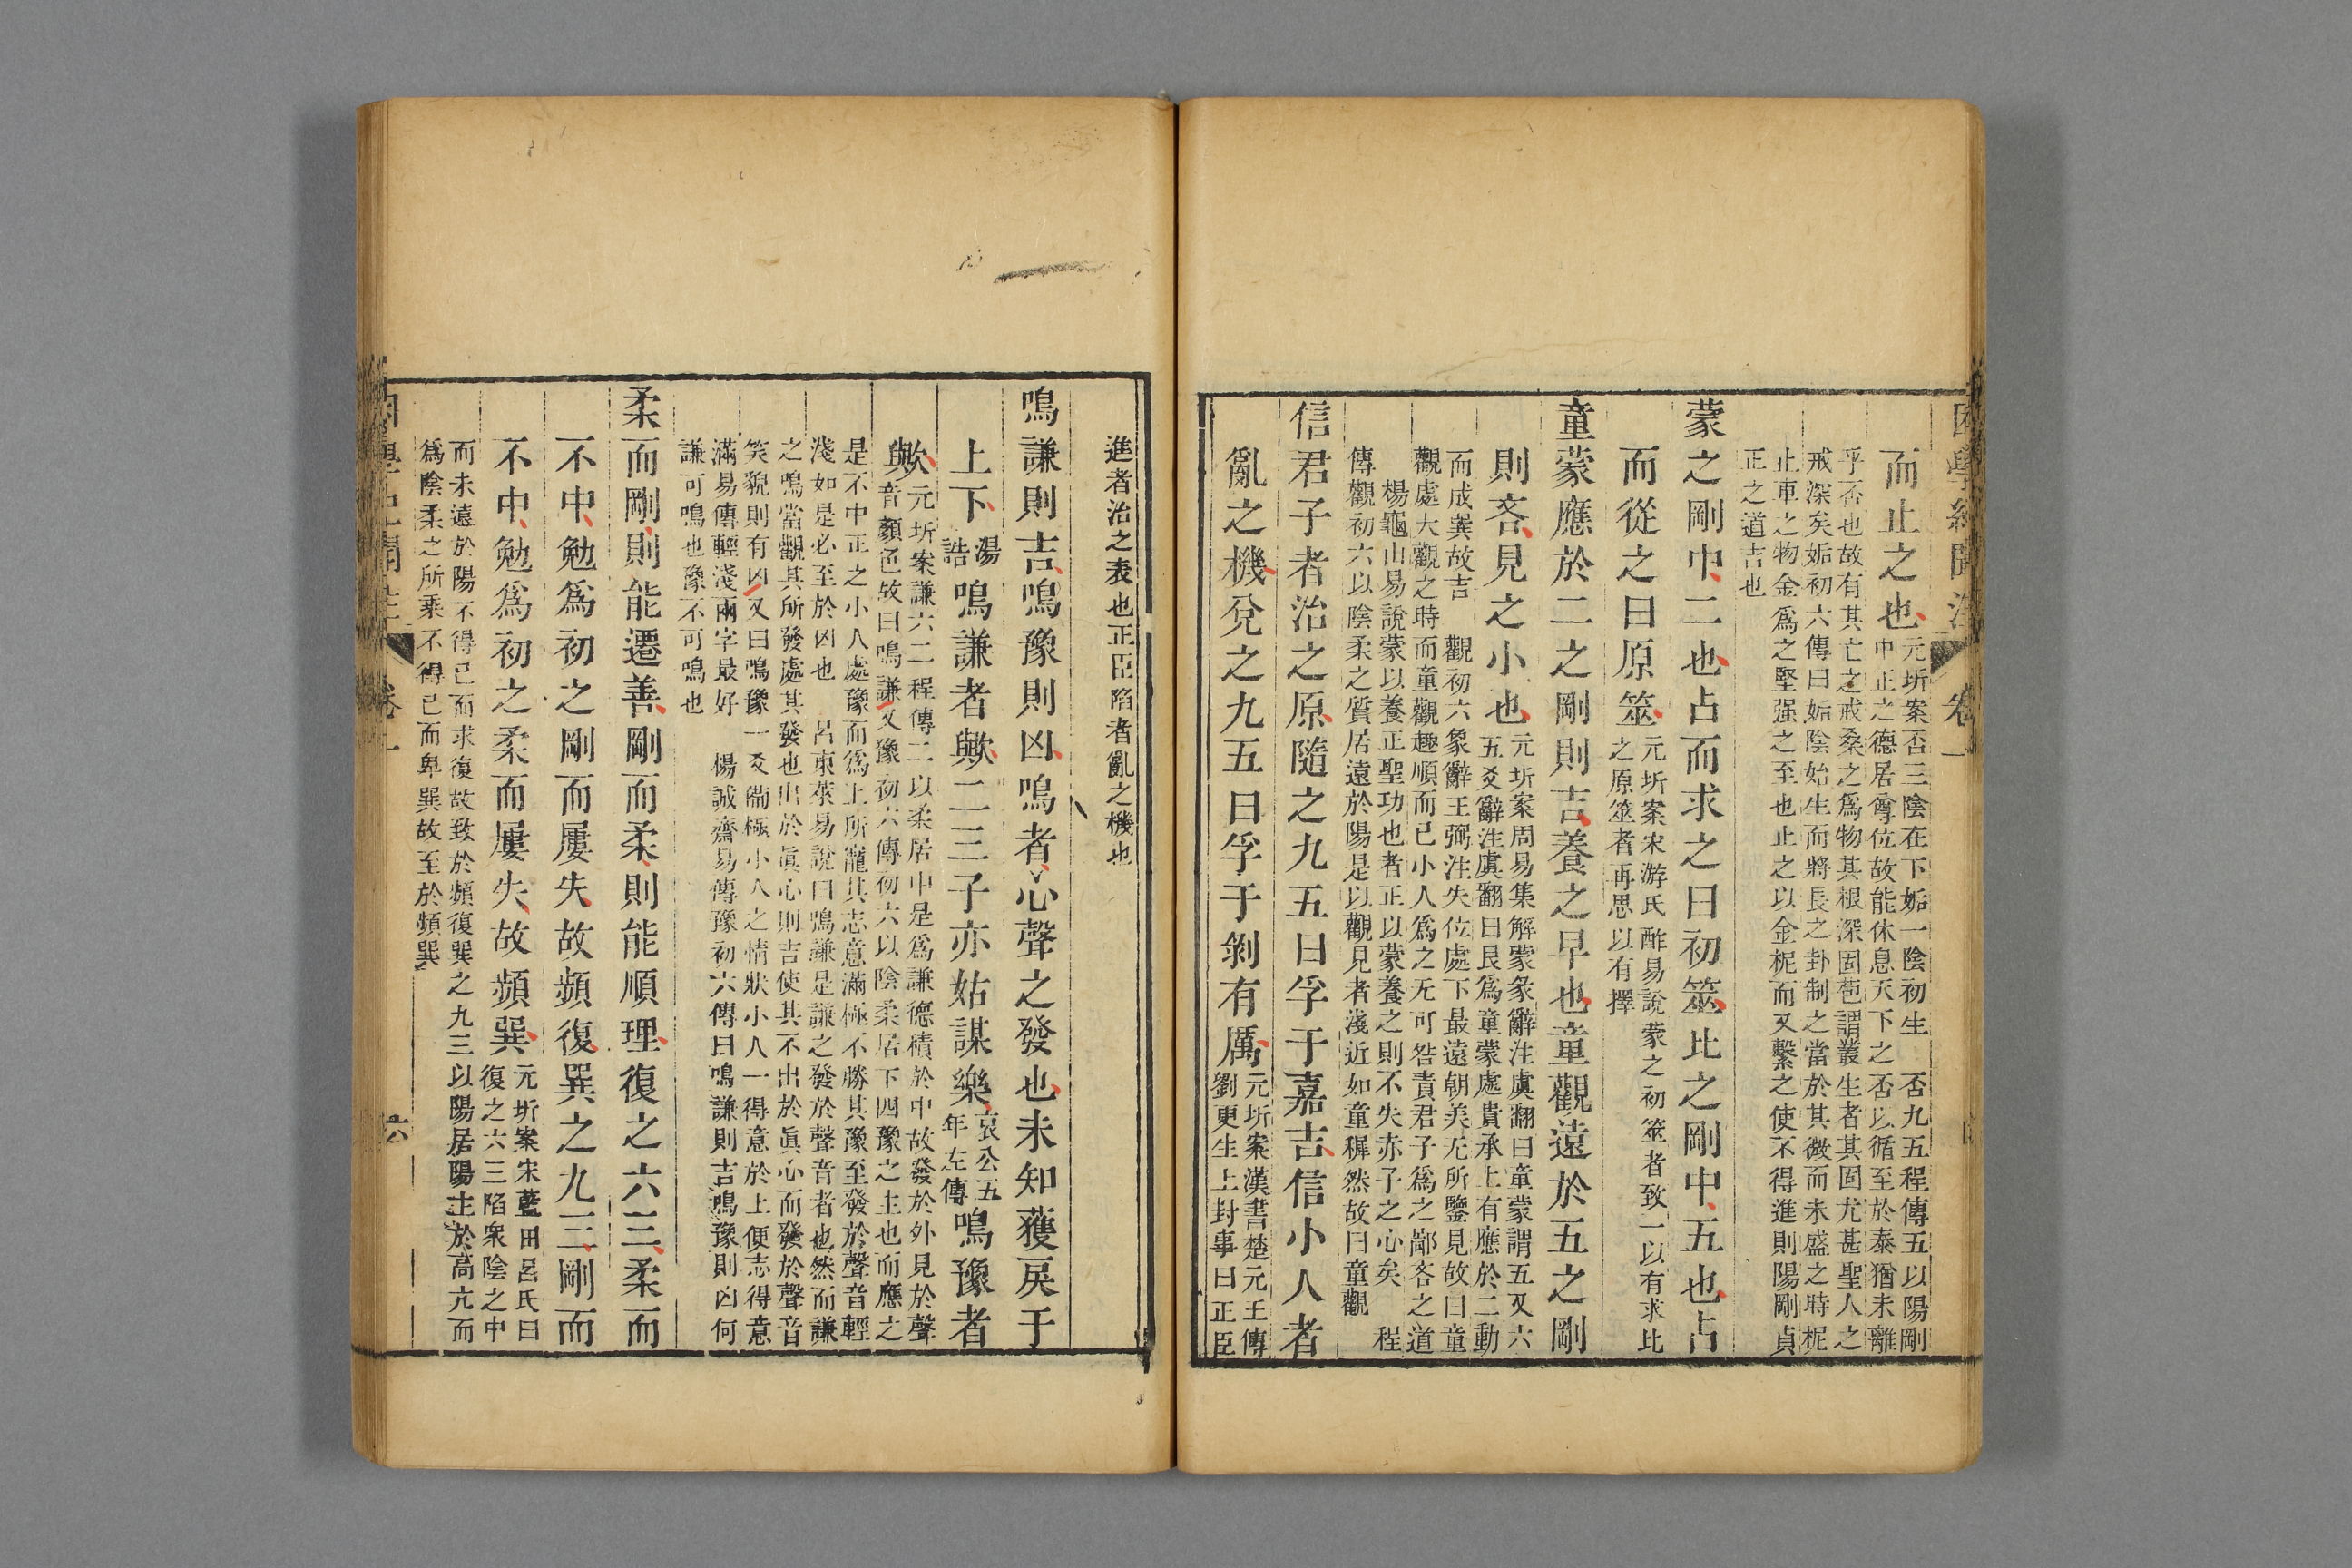 困學紀聞注 卷一
而止之也元圻案否三陰在下姤一陰初生 否九五程傳五以陽剛
中正之德居尊位故能休息天下之否以循至於泰猶未離
乎否也故有其亡之戒桑之為物其根深固苞謂叢生者其固尤甚聖人之
戒深矣姤初六傳曰姤陰始生而將長之卦制之當於其微而未盛之時柅
止車之物金為之堅强之至也止之以金柅而又繫之使不得進則陽剛貞
正之道吉也
蒙之剛中二也占而求之曰初筮比之剛中五也占
而從之曰原筮元圻案宋游氏酢易說蒙之初筮者致一以有求比
之原筮者再思以有擇
童蒙應於二之剛則吉養之早也童觀遠於五之剛
則吝見之小也元圻案周易集解蒙彖辭注虞翻曰童蒙謂五又六
五爻辭注虞翻曰艮為童蒙處貴承上有應於二動
而成巽故吉 觀初六象辭王弼注失位處下最遠朝美无所鑒見故曰童
觀處大觀之時而童觀趣順而已小人為之无可咎責君子為之鄙吝之道
楊龜山易說蒙以養正聖功也者正以蒙養之則不失赤子之心矣 程
傳觀初六以陰柔之質居遠於陽是以觀見者淺近如童稺然故曰童觀
信君子者治之原隨之九五曰孚于嘉吉信小人者
亂之機兌之九五曰孚于剝有厲元圻案漢書楚元王傳
劉更生上封事曰正臣
進者治之表也正臣陷者亂之機也
鳴謙則吉鳴豫則凶鳴者心聲之發也未知獲戾于
上下湯誥鳴謙者歟二三子亦姑謀樂哀公五年左傳鳴豫者
歟元圻案謙六二程傳二以柔居中是為謙德積於中故發於外見於聲
音顏色故曰鳴謙又豫初六傳初六以陰柔居下四豫之主也而應之
是不中正之小人處豫而為上所寵其志意滿極不勝其豫至發於聲音輕
淺如是必至於凶也 呂東萊易說曰鳴謙是謙之發於聲音者也然而謙
之鳴當觀其所發處其發也出於眞心則吉使其不出於眞心而發於聲音
笑貌則有凶又曰鳴豫一爻備極小人之情狀小人一得意於上便志得意
滿易傳輕淺兩字最好 楊誠齋易傳豫初六傳曰鳴謙則吉鳴豫則凶何
謙可鳴也豫不可鳴也
柔而剛則能遷善剛而柔則能順理復之六三柔而
不中勉為初之剛而屢失故頻復巽之九三剛而
不中勉為初之柔而屢失故頻巽元圻案宋藍田呂氏曰
復之六三陷衆陰之中
而未遠於陽不得已而求復故致於頻復巽之九三以陽居陽主於高亢而
為陰柔之所乘不得已而卑巽故至於頻巽
卷一 六